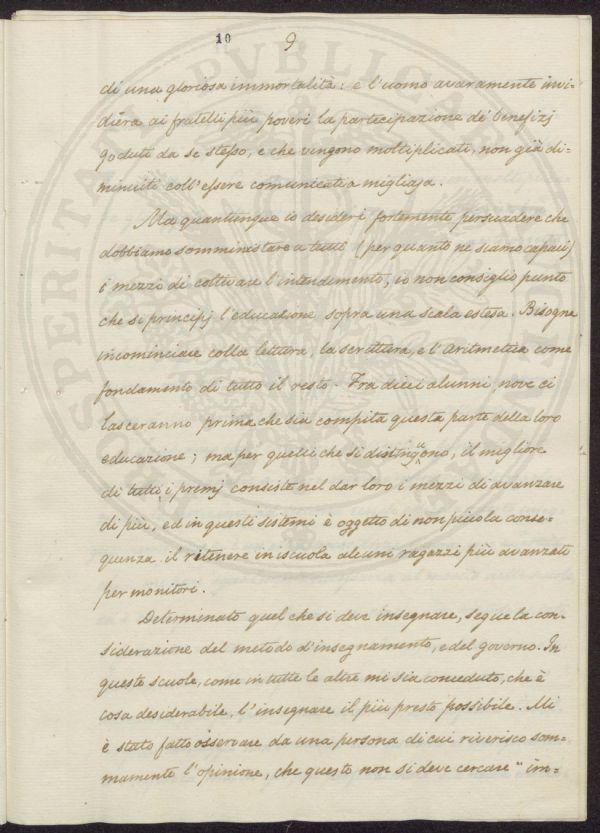 10 9
di una gloriosa immortalità: e l'uomo avaramente invi-
dierà ai fratelli più poveri la partecipazione de' benefizj
goduti da se stesso, e che vengono moltiplicati, non già di-
minuiti coll'essere comunicati a migliaja.
Ma quantunque io desideri fortemente persuadere che
dobbiamo somministrare a tutti (per quanto ne siamo capaci)
i mezzi di coltivare l'intendimento, io non consiglio punto
che si principj l'educazione sopra una scala estesa. Bisogna
incominciare colla lettura, la scrittura, e l'aritmetica come
fondamento di tutto il resto. Fra dieci alunni, nove ci
lasceranno prima che sia compita questa parte della loro
educazione; ma per quelli che si distinguono, il migliore
di tutti i premj consiste nel dar loro i mezzi di avanzare
di più, ed in questi sistemi è oggetto di non piccola conse-
guenza il ritenere in iscuola alcuni ragazzi più avanzati
per monitori.
Determinato quel che si deve insegnare, segue la con-
siderazione del metodo d'insegnamento, e del governo. In
queste scuole, come in tutte le altre mi sia conceduto, che è
cosa desiderabile, l'insegnare il più presto possibile. Mi
è stato fatto osservare da una persona di cui riverisco som-
mamente l'opinione, che questo non si deve cercare "im-